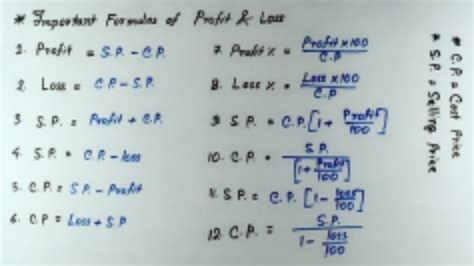 * Important Formulas of Profit & Loss
1. Profit = S.P. - C.P.
2. Loss = C.P. - S.P.
3. S.P. = Profit + C.P.
4. S.P. = C.P. - loss
5. C.P. = S.P. - Profit
6. C.P = Loss + S.P
7. Profit % = Profit x 100 / C.P
8. Loss % = Loss x 100 / C.P
9. S.P. = C.P. [1 + Profit / 100]
10. C.P. = S.P. / [1 + Profit / 100]
11. S.P. = C.P. [1 - loss / 100]
12. C.P. = S.P. / 1 - loss / 100
* C.P. = Cost Price
* S.P. = Selling Price